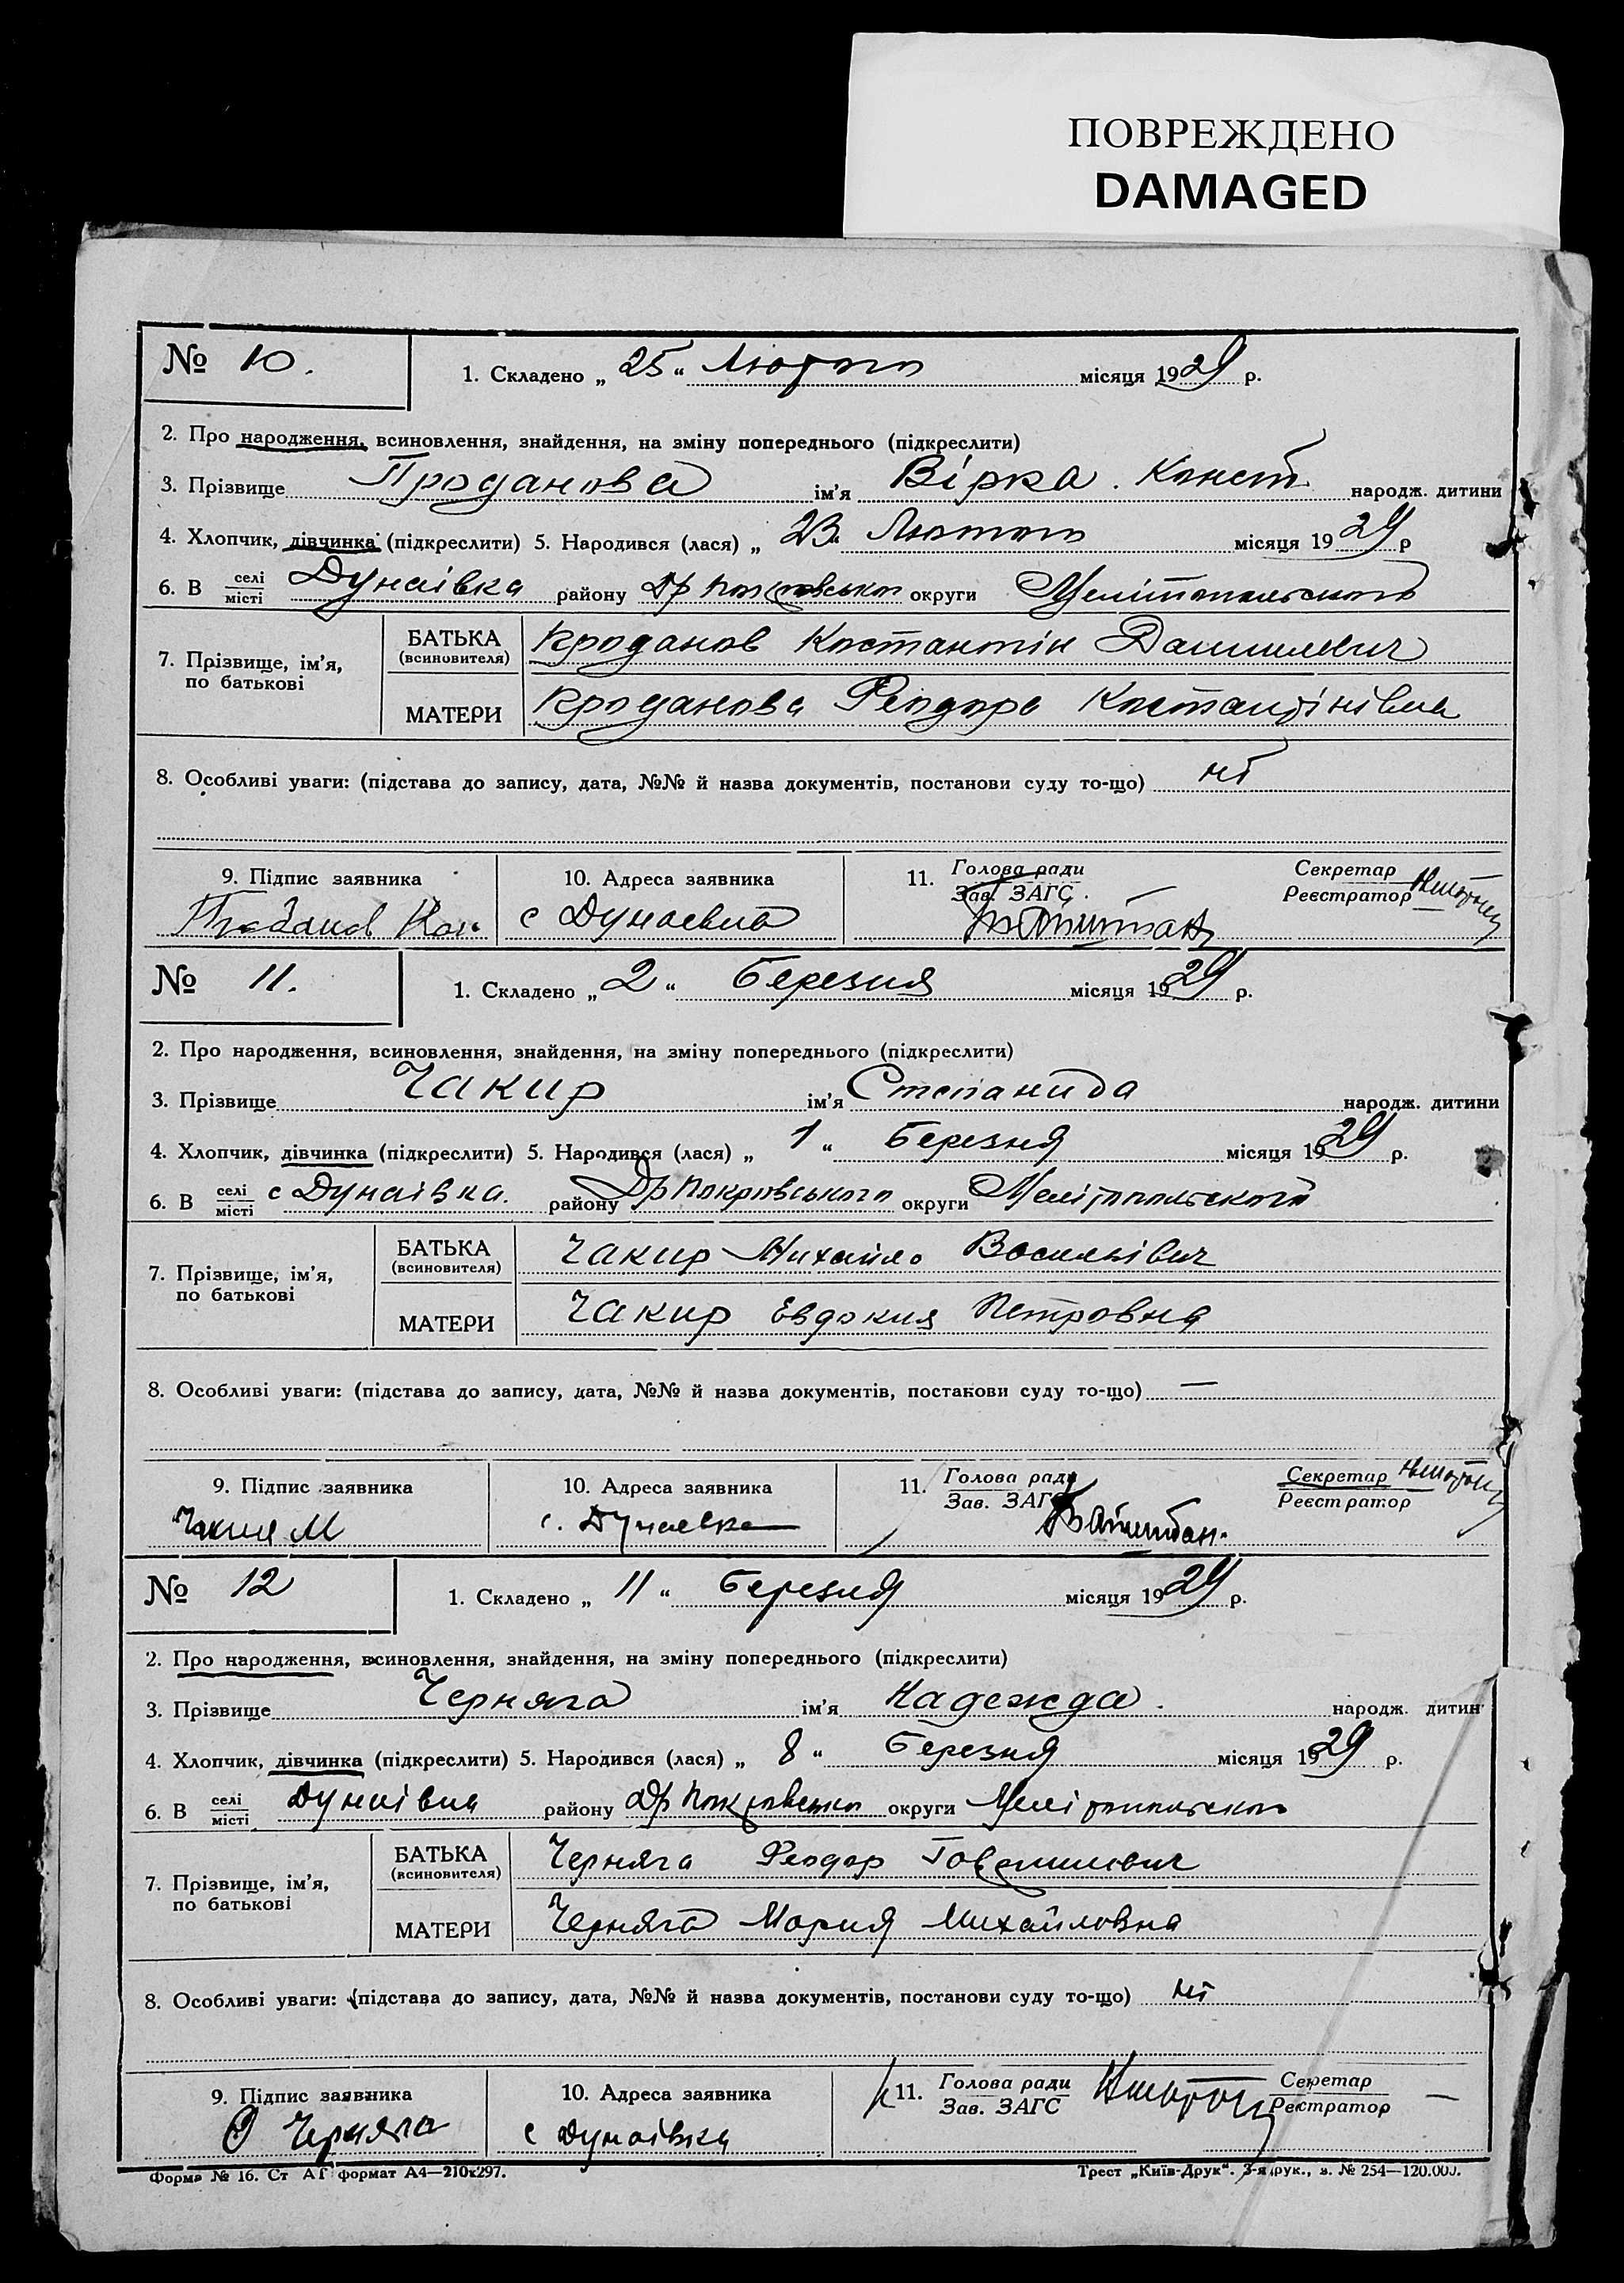 ПОВРЕЖДЕНО
DAMAGED
№ 10. 1. Складено „ 25 “ Лютого місяця 1929 р.
2. Про народження, всиновлення, знайдення, на зміну попереднього (підкреслити)
3. Прізвище Проданова ім’я Вірка. Конст. народж. дитини
4. Хлопчик, дівчинка (підкреслити) 5. Народився (лася) „ 23 “ Лютого місяця 1929 р
6. В селі/місті Дунаівка району Др Покровського округи Мелітопольского
7. Прізвище, ім’я, по батькові
БАТЬКА (всиновителя) Проданов Костантін Данилович
МАТЕРИ Проданова Феодора Костантінівна
8. Особливі уваги: (підстава до запису, дата, №№ й назва документів, постанови суду то-що) ні
9. Підпис заявника 10. Адреса заявника 11. Голова ради/Зав. ЗАГС Секретар/Реєстратор
с Дунаевка
№ 11. 1. Складено „ 2 “ Березня місяця 1929 р.
2. Про народження, всиновлення, знайдення, на зміну попереднього (підкреслити)
3. Прізвище Чакир ім’я Степанида народж. дитини
4. Хлопчик, дівчинка (підкреслити) 5. Народився (лася) „ 1 “ Березня місяця 1929 р.
6. В селі/місті с Дунаівка. району Др Покровського округи Мелітопольского
7. Прізвище, ім’я, по батькові
БАТЬКА (всиновителя) Чакир Михайло Васильівич
МАТЕРИ Чакир Евдокия Петровна
8. Особливі уваги: (підстава до запису, дата, №№ й назва документів, постанови суду то-що) —
9. Підпис заявника 10. Адреса заявника 11. Голова ради/Зав. ЗАГС Секретар/Реєстратор
Чакир М с. Дунаевка
№ 12 1. Складено „ 11 “ Березня місяця 1929 р.
2. Про народження, всиновлення, знайдення, на зміну попереднього (підкреслити)
3. Прізвище Черняга ім’я Надежда. народж. дитин
4. Хлопчик, дівчинка (підкреслити) 5. Народився (лася) „ 8 “ Березня місяця 1929 р.
6. В селі/місті Дунаівка району Др Покровсько округи Мелітопольского
7. Прізвище, ім’я, по батькові
БАТЬКА (всиновителя) Черняга Феодор
МАТЕРИ Черняга Мария Михайловна
8. Особливі уваги: (підстава до запису, дата, №№ й назва документів, постанови суду то-що) ні
9. Підпис заявника 10. Адреса заявника 11. Голова ради/Зав. ЗАГС Секретар/Реєстратор —
Черняга с Дунаівка
Форма № 16. Ст А1 формат А4—210х297. Трест „Київ-Друк“. 3-я друк., з. № 254—120.000.